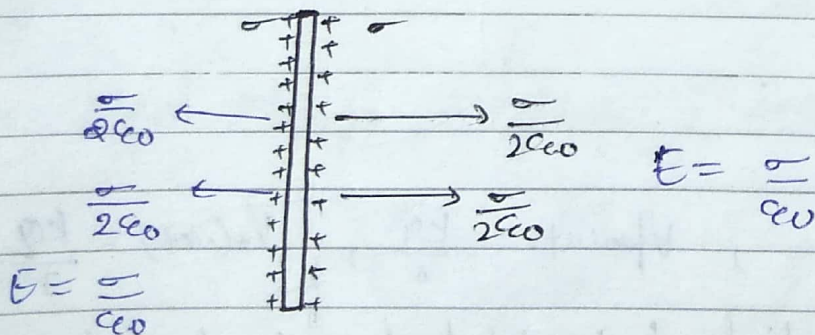 + +
σ + + σ
σ/2ε0 σ/2ε0
E = σ/ε0
σ/2ε0 σ/2ε0
E = σ/ε0